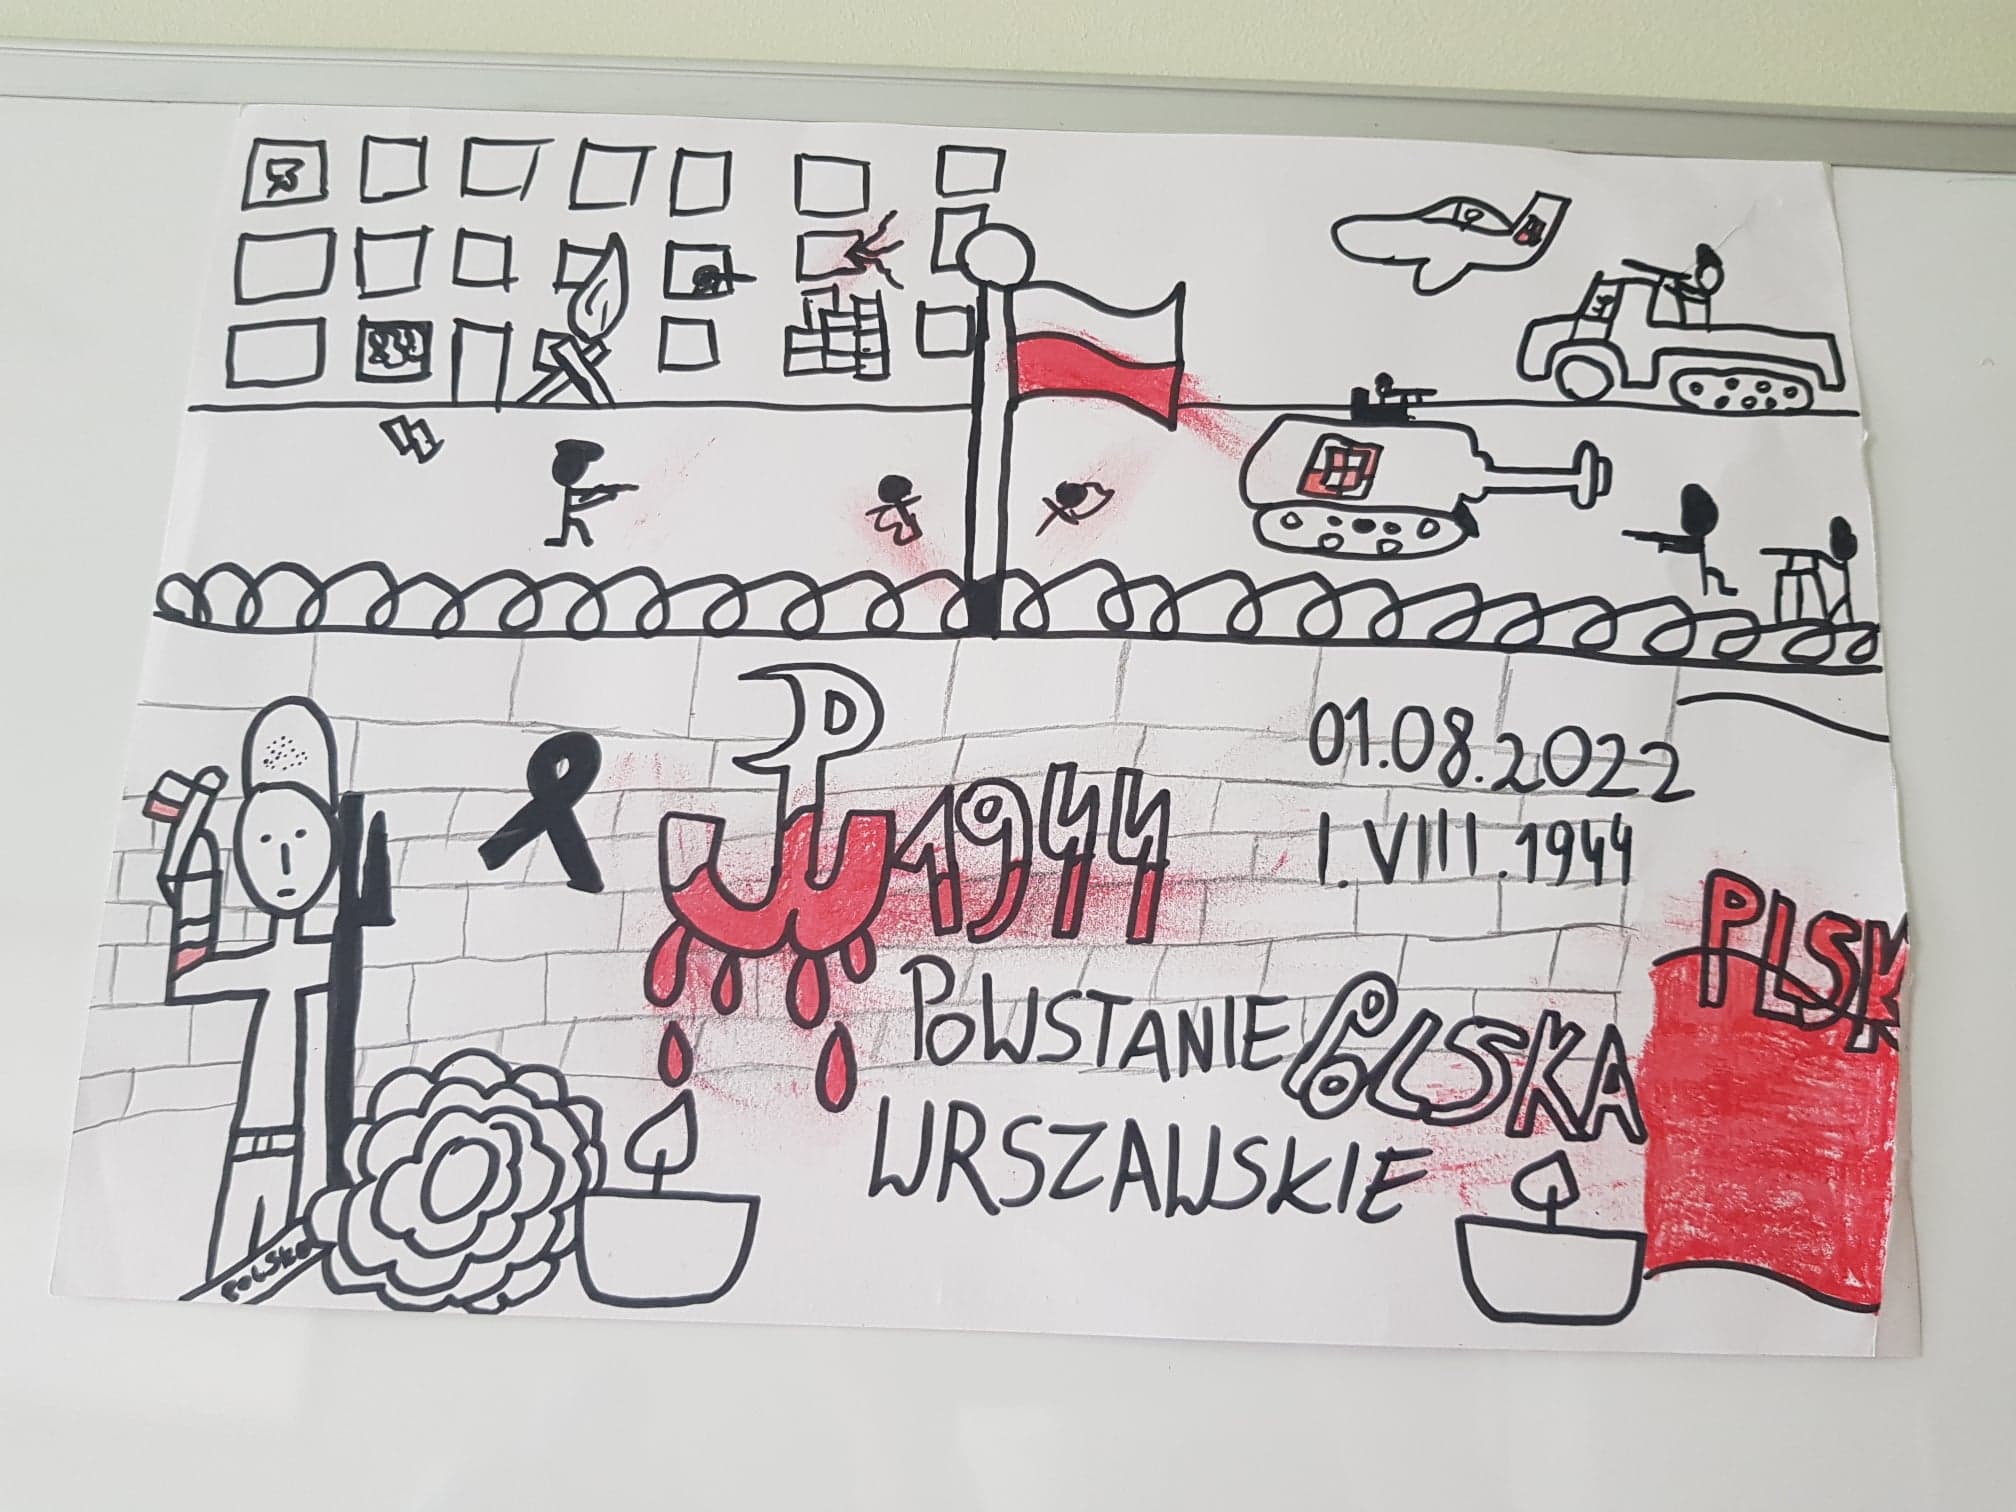 01.08.2022
I.VIII.1944
PW 1944
PLSK
POWSTANIE POLSKA
WRSZAWSKIE
POLSKA